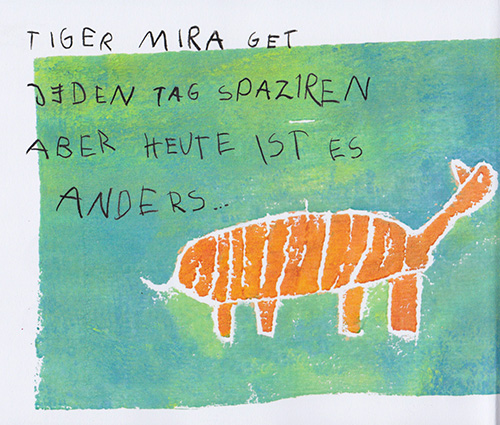 TIGER MIRA GET
JEDEN TAG SPAZIREN
ABER HEUTE IST ES
ANDERS...